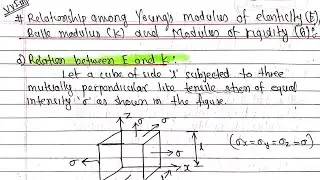 VVImp
# Relationship among Young's modulus of elasticity (E),
Bulk modulus (K) and Modulus of rigidity (G):-
a) Relation between E and K:-
Let a cube of side 'l' subjected to three
mutually perpendicular like tensile stress of equal
intensity 'σ' as shown in the figure.
z
σ
σ
l
(σx = σy = σz = σ)
σ
σ
x